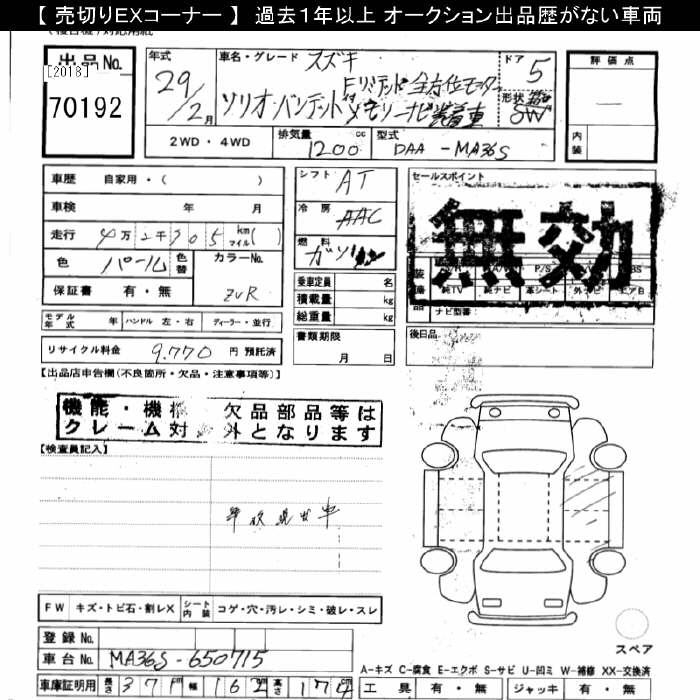 【 売切りEXコーナー 】 過去1年以上 オークション出品歴がない車両
出品No.
[2018]
70192
年式
29/2月
車名・グレード
スズキ
ソリオ・バンデット
全方位モニター付メモリーナビ装着車
ドア
5
形状
SW
評価点
内装
2WD ・ 4WD
排気量
1200
cc
型式
DAA -MA36S
車歴 自家用・( )
車検 年 月
走行
km
マイル
( )
色 パール
色替
カラーNo.
ZVR
保証書 有・無
モデル年式 年 ハンドル 左・右 ディーラー・並行
リサイクル料金 9,770 円 預託済
シフト
AT
冷房
AAC
燃料
ガソリン
乗車定員 名
積載量 kg
総重量 kg
書類期限
月 日
セールスポイント
無効
純TV
純ナビ
革シート
エアB
ナビ型番
後日品
【出品店申告欄(不良箇所・欠品・注意事項等)】
機能・機 欠品部品等は
クレーム対 外となります
【検査員記入】
FW キズ・トビ石・割レX シート内装 コゲ・穴・汚レ・シミ・破レ・スレ
登録 No.
車台 No. MA36S-650715
車庫証明用 長さ 371 幅 162 高さ 174
スペア
A-キズ C-腐食 E-エクボ S-サビ U-凹ミ W-補修 XX-交換済
工具 有・無 ジャッキ 有・無